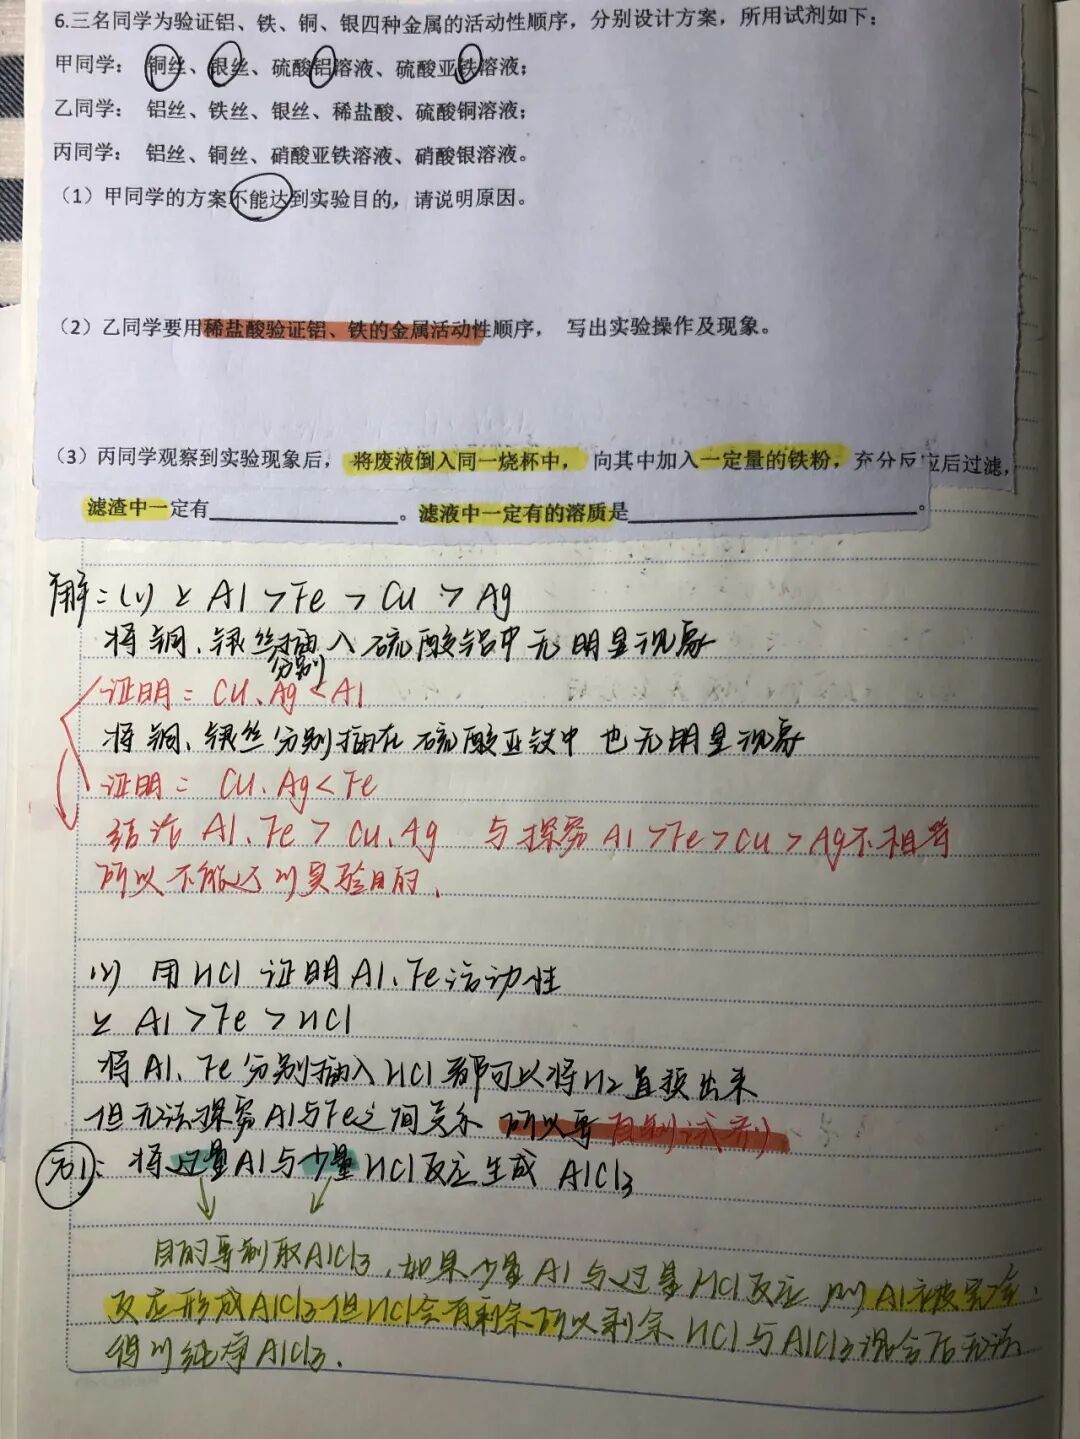 6.三名同学为验证铝、铁、铜、银四种金属的活动性顺序，分别设计方案，所用试剂如下：
甲同学： 铜丝、银丝、硫酸铝溶液、硫酸亚铁溶液；
乙同学： 铝丝、铁丝、银丝、稀盐酸、硫酸铜溶液；
丙同学： 铝丝、铜丝、硝酸亚铁溶液、硝酸银溶液。
（1）甲同学的方案不能达到实验目的，请说明原因。
（2）乙同学要用稀盐酸验证铝、铁的金属活动性顺序， 写出实验操作及现象。
（3）丙同学观察到实验现象后， 将废液倒入同一烧杯中， 向其中加入一定量的铁粉，充分反应后过滤，
滤渣中一定有____________。滤液中一定有的溶质是____________________。
解：(1) ∵ Al＞Fe＞Cu＞Ag
将铜、银丝分别插入硫酸铝中无明显现象
证明：Cu、Ag＜Al
将铜、银丝分别插在硫酸亚铁中 也无明显现象
证明：Cu、Ag＜Fe
结论 Al、Fe＞Cu、Ag 与探究 Al＞Fe＞Cu＞Ag不相符
所以不能达到实验目的.
(2) 用HCl证明Al、Fe活动性
∵ Al＞Fe＞HCl
将Al、Fe分别插入HCl都可以将H2置换出来
但无法探究Al与Fe之间关系 所以要自制试剂
方1：将过量Al与少量HCl反应生成 AlCl3
目的要制取AlCl3，如果少量Al与过量HCl反应 则Al
反应形成AlCl3 但HCl会有剩余 所以剩余HCl与AlCl3混合后无法
得到纯净AlCl3.